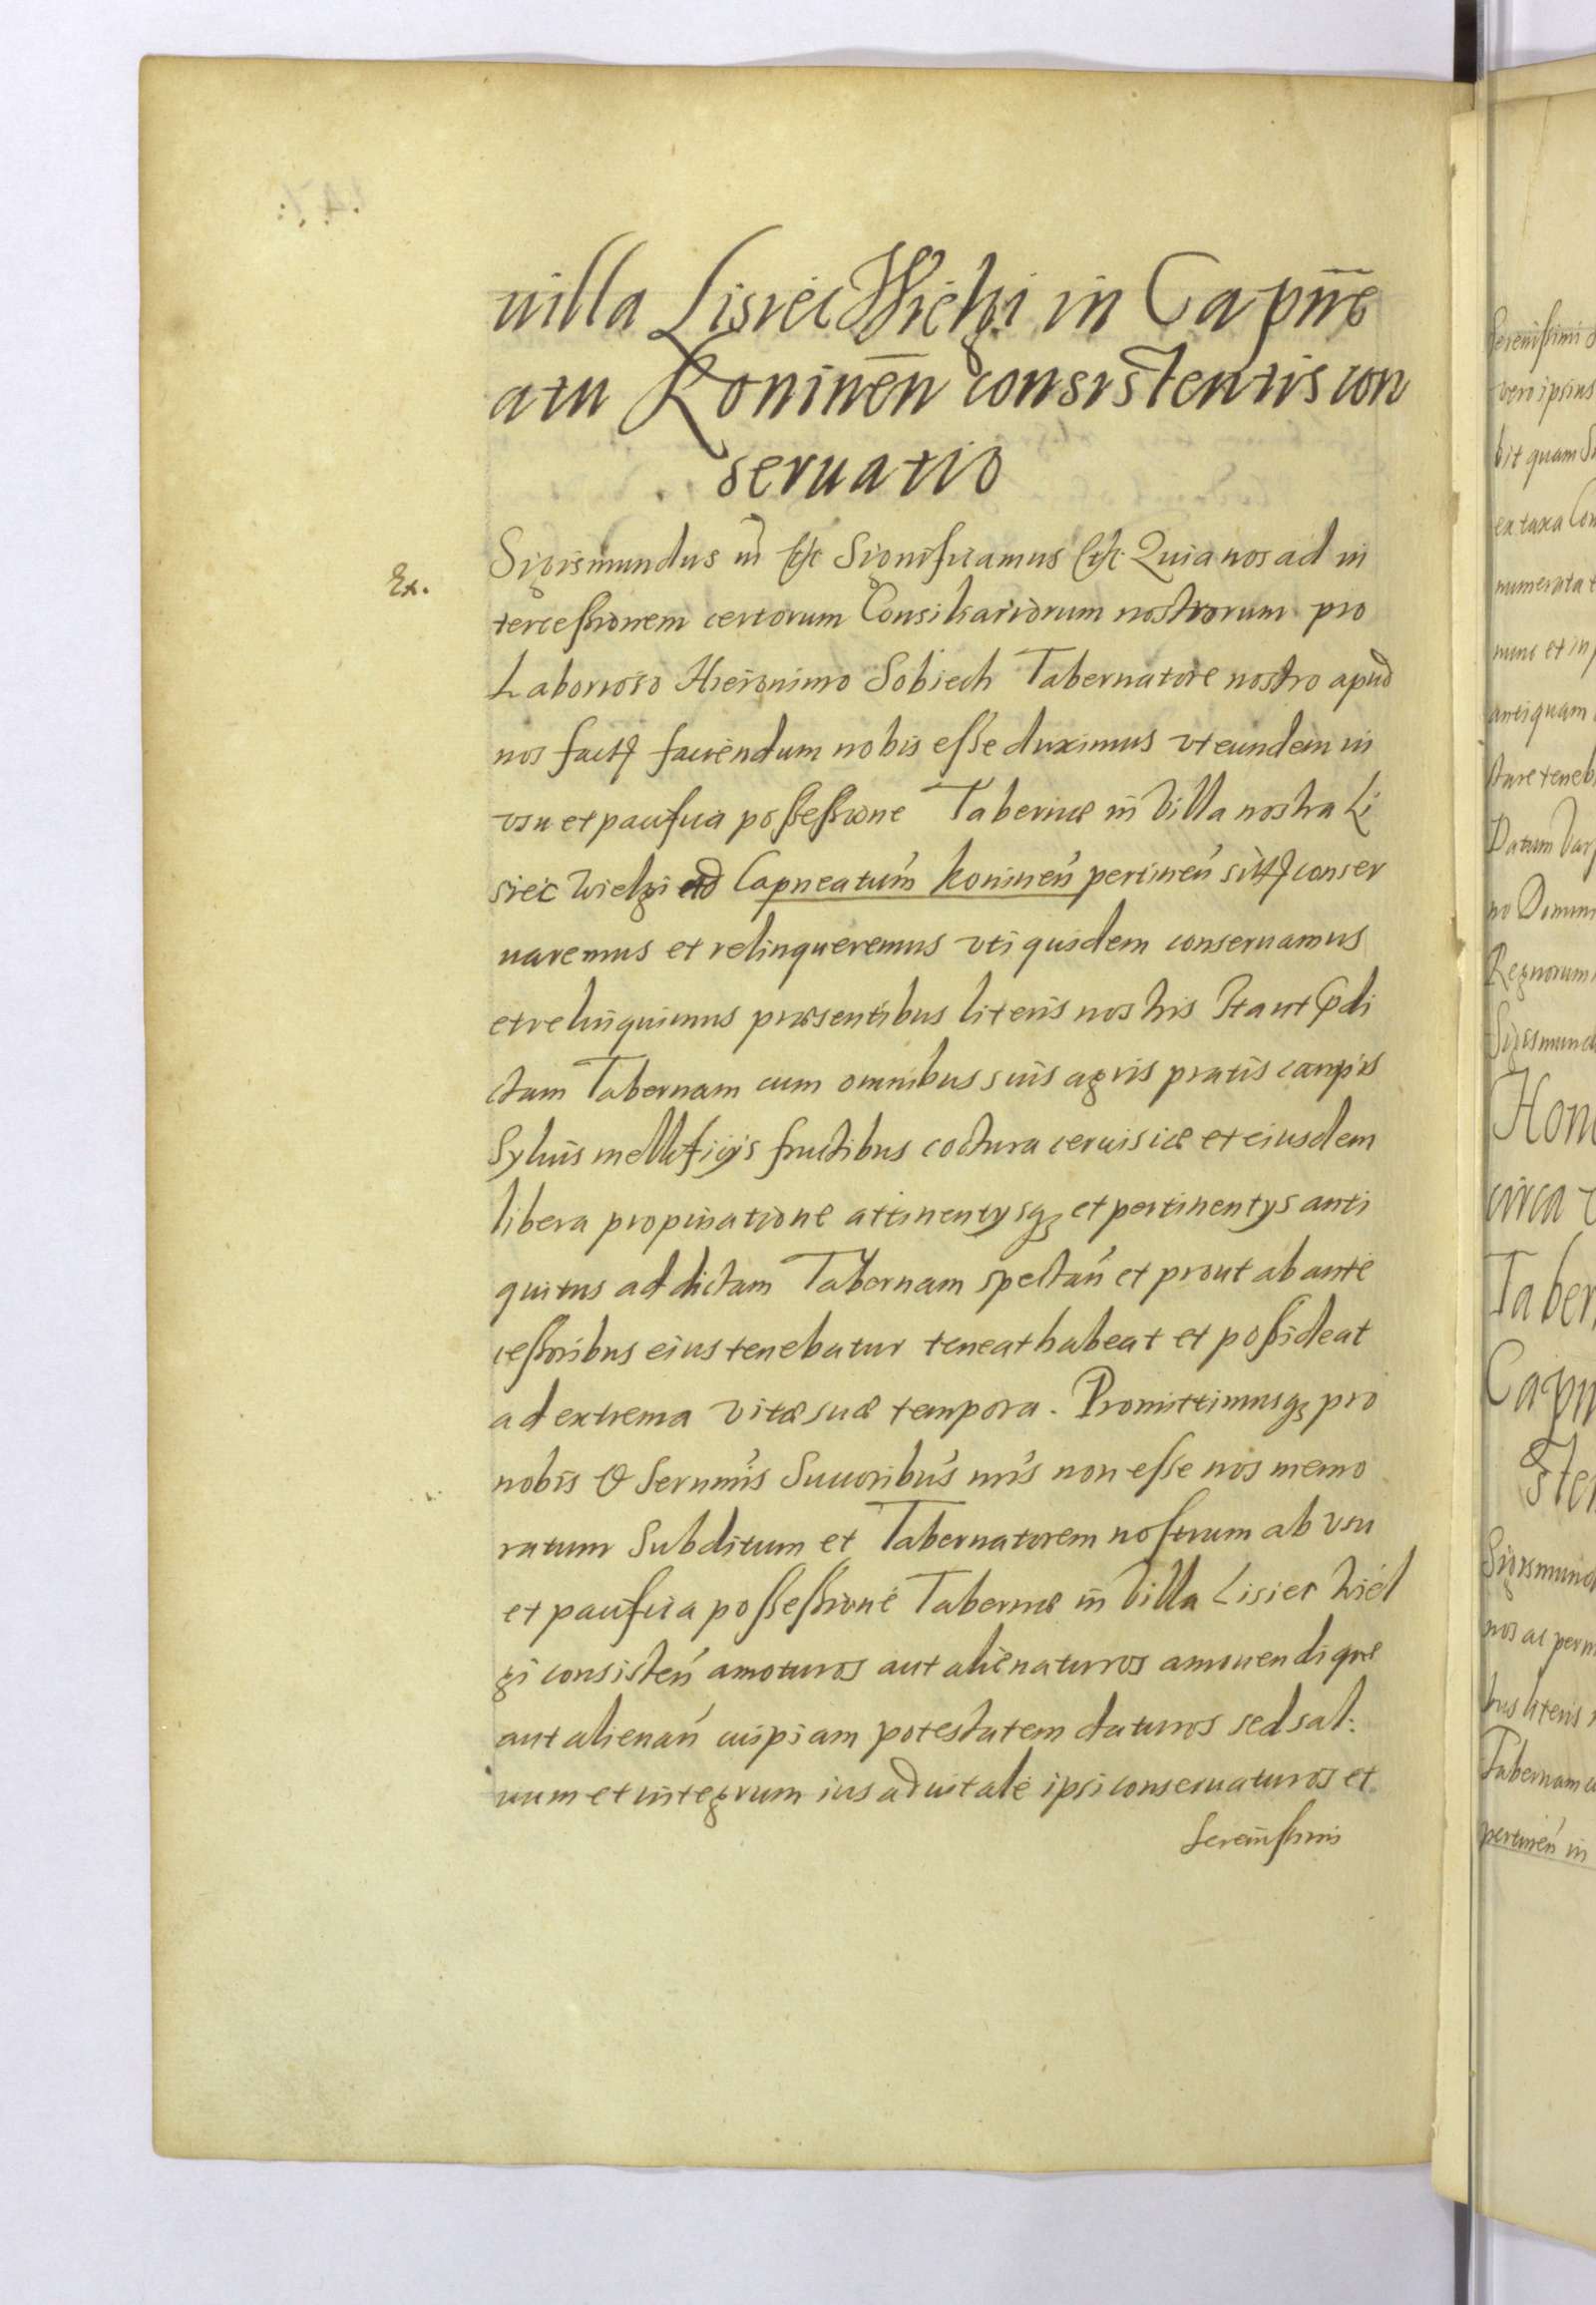 villa Lisiec Wielgi in Capnẽ
atu Koninen̄ consistentis con
seruatio
Ex.
Sigismundus iii etc Significamus etc Quia nos ad in
tercessionem certorum Consiliariorum nostrorum pro
Laborioso Hieronimo Sobiech Tabernatore nostro apud
nos factą faciendum nobis esse duximus vt eundem in
vsu et pacifica possessione Tabernæ in Villa nostra Li
siec Wielgi ad Capneatum Koninen̄ pertinen̄ sitą conser
uaremus et relinqueremus vti quidem conseruamus
et relinquimus præsentibus literis nostris Ita ut p̄di
ctam Tabernam cum omnibus suis agris pratis campis
Syluis mellificijs fructibus coctura ceruisiæ et eiusdem
libera propinatione attinentysq₃ et pertinentys anti
quitus ad dictam Tabernam spectan̄ et prout ab ante
cessoribus eius tenebatur teneat habeat et possideat
ad extrema vitæ suæ tempora. Promittimusq₃ pro
nobis & Sernmis Succoribus nris non esse nos memo
ratum Subditum et Tabernatorem nostrum ab vsu
et pacifica possessione Tabernæ in Villa Lisiec Wiel
gi consisten̄ amoturos aut alienaturos amouendique
aut alienan̄ cuipiam potestatem daturos sed sal:
uum et integrum ius aduitale ipsi conseruaturos et
Serenissimi